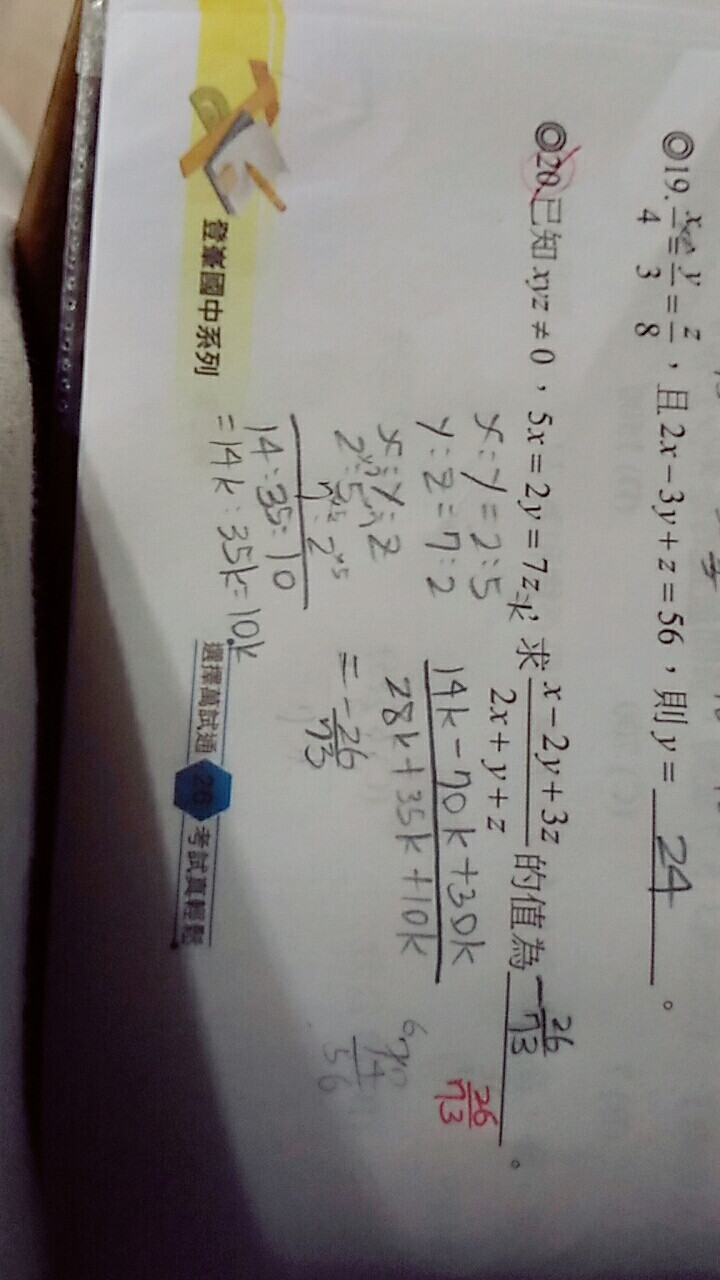 ◎19. x/4 = y/3 = z/8，且 2x－3y＋z＝56，則 y＝ 24 。
◎20. 已知 xyz≠0，5x＝2y＝7z=k，求 (x－2y＋3z)/(2x＋y＋z) 的值為 －26/73 。
26/73
x:y=2:5
y:z=7:2
x:y:z
2×7:5×7
7×5:2×5
14:35:10
=14k:35k:10k
14k－70k＋30k
28k＋35k＋10k
=－26/73
登峯國中系列
選擇萬試通 26 考試真輕鬆